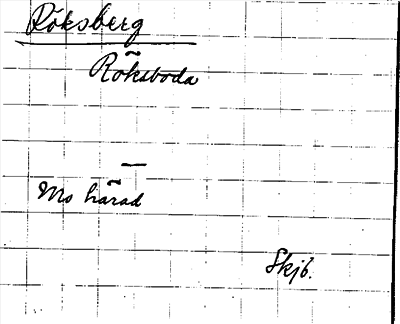 Röksberg
Röksboda
—
Mo härad
Skjb.